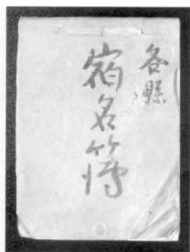 各縣
宿名簿